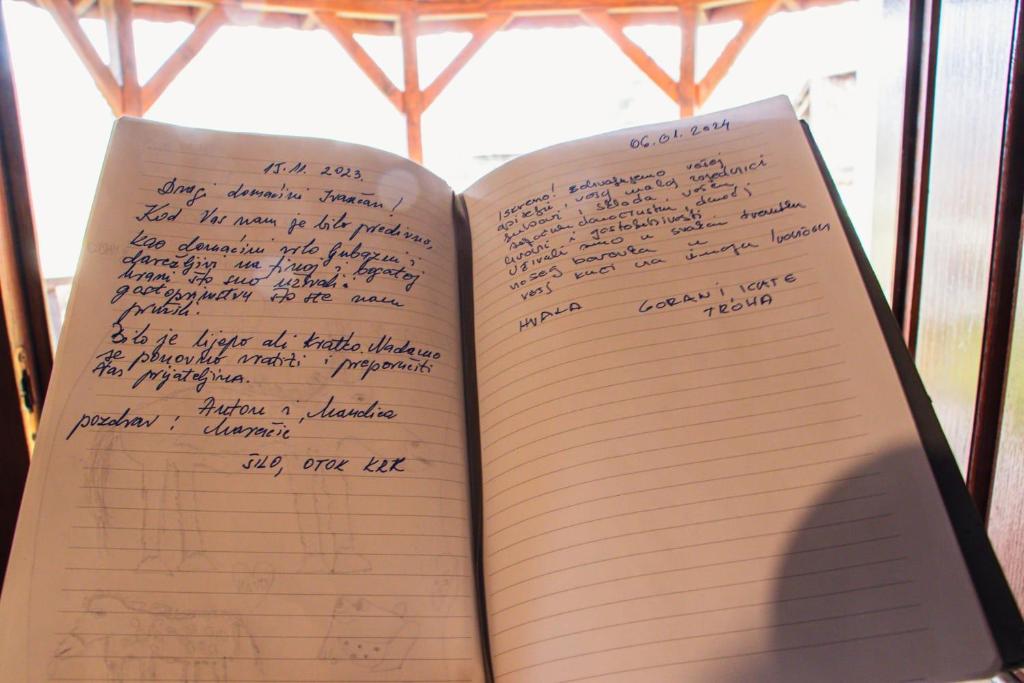 15.11.2023.
Dragi domaćini Ivančan!
Kod Vas nam je bilo predivno,
kao domaćini vrlo ljubazni i
darežljivi na finoj i bogatoj
hrani što smo uživali i
gostoprimstvu što ste nam
pružili.
Bilo je lijepo ali kratko. Nadamo
se ponovno vratiti i preporučiti
Vas prijateljima.
pozdrav! Anton i Mandica
ŠILO, OTOK KRK
06.01.2024
Iskreno! zahvaljujemo vašoj
obitelji, vašoj maloj zajednici
ljubavi i sklada
i gostoljubivosti.
Uživali smo u svakom trenutku
našeg boravka u
vašoj kući na imanju Ivančan
HVALA GORAN I KATE